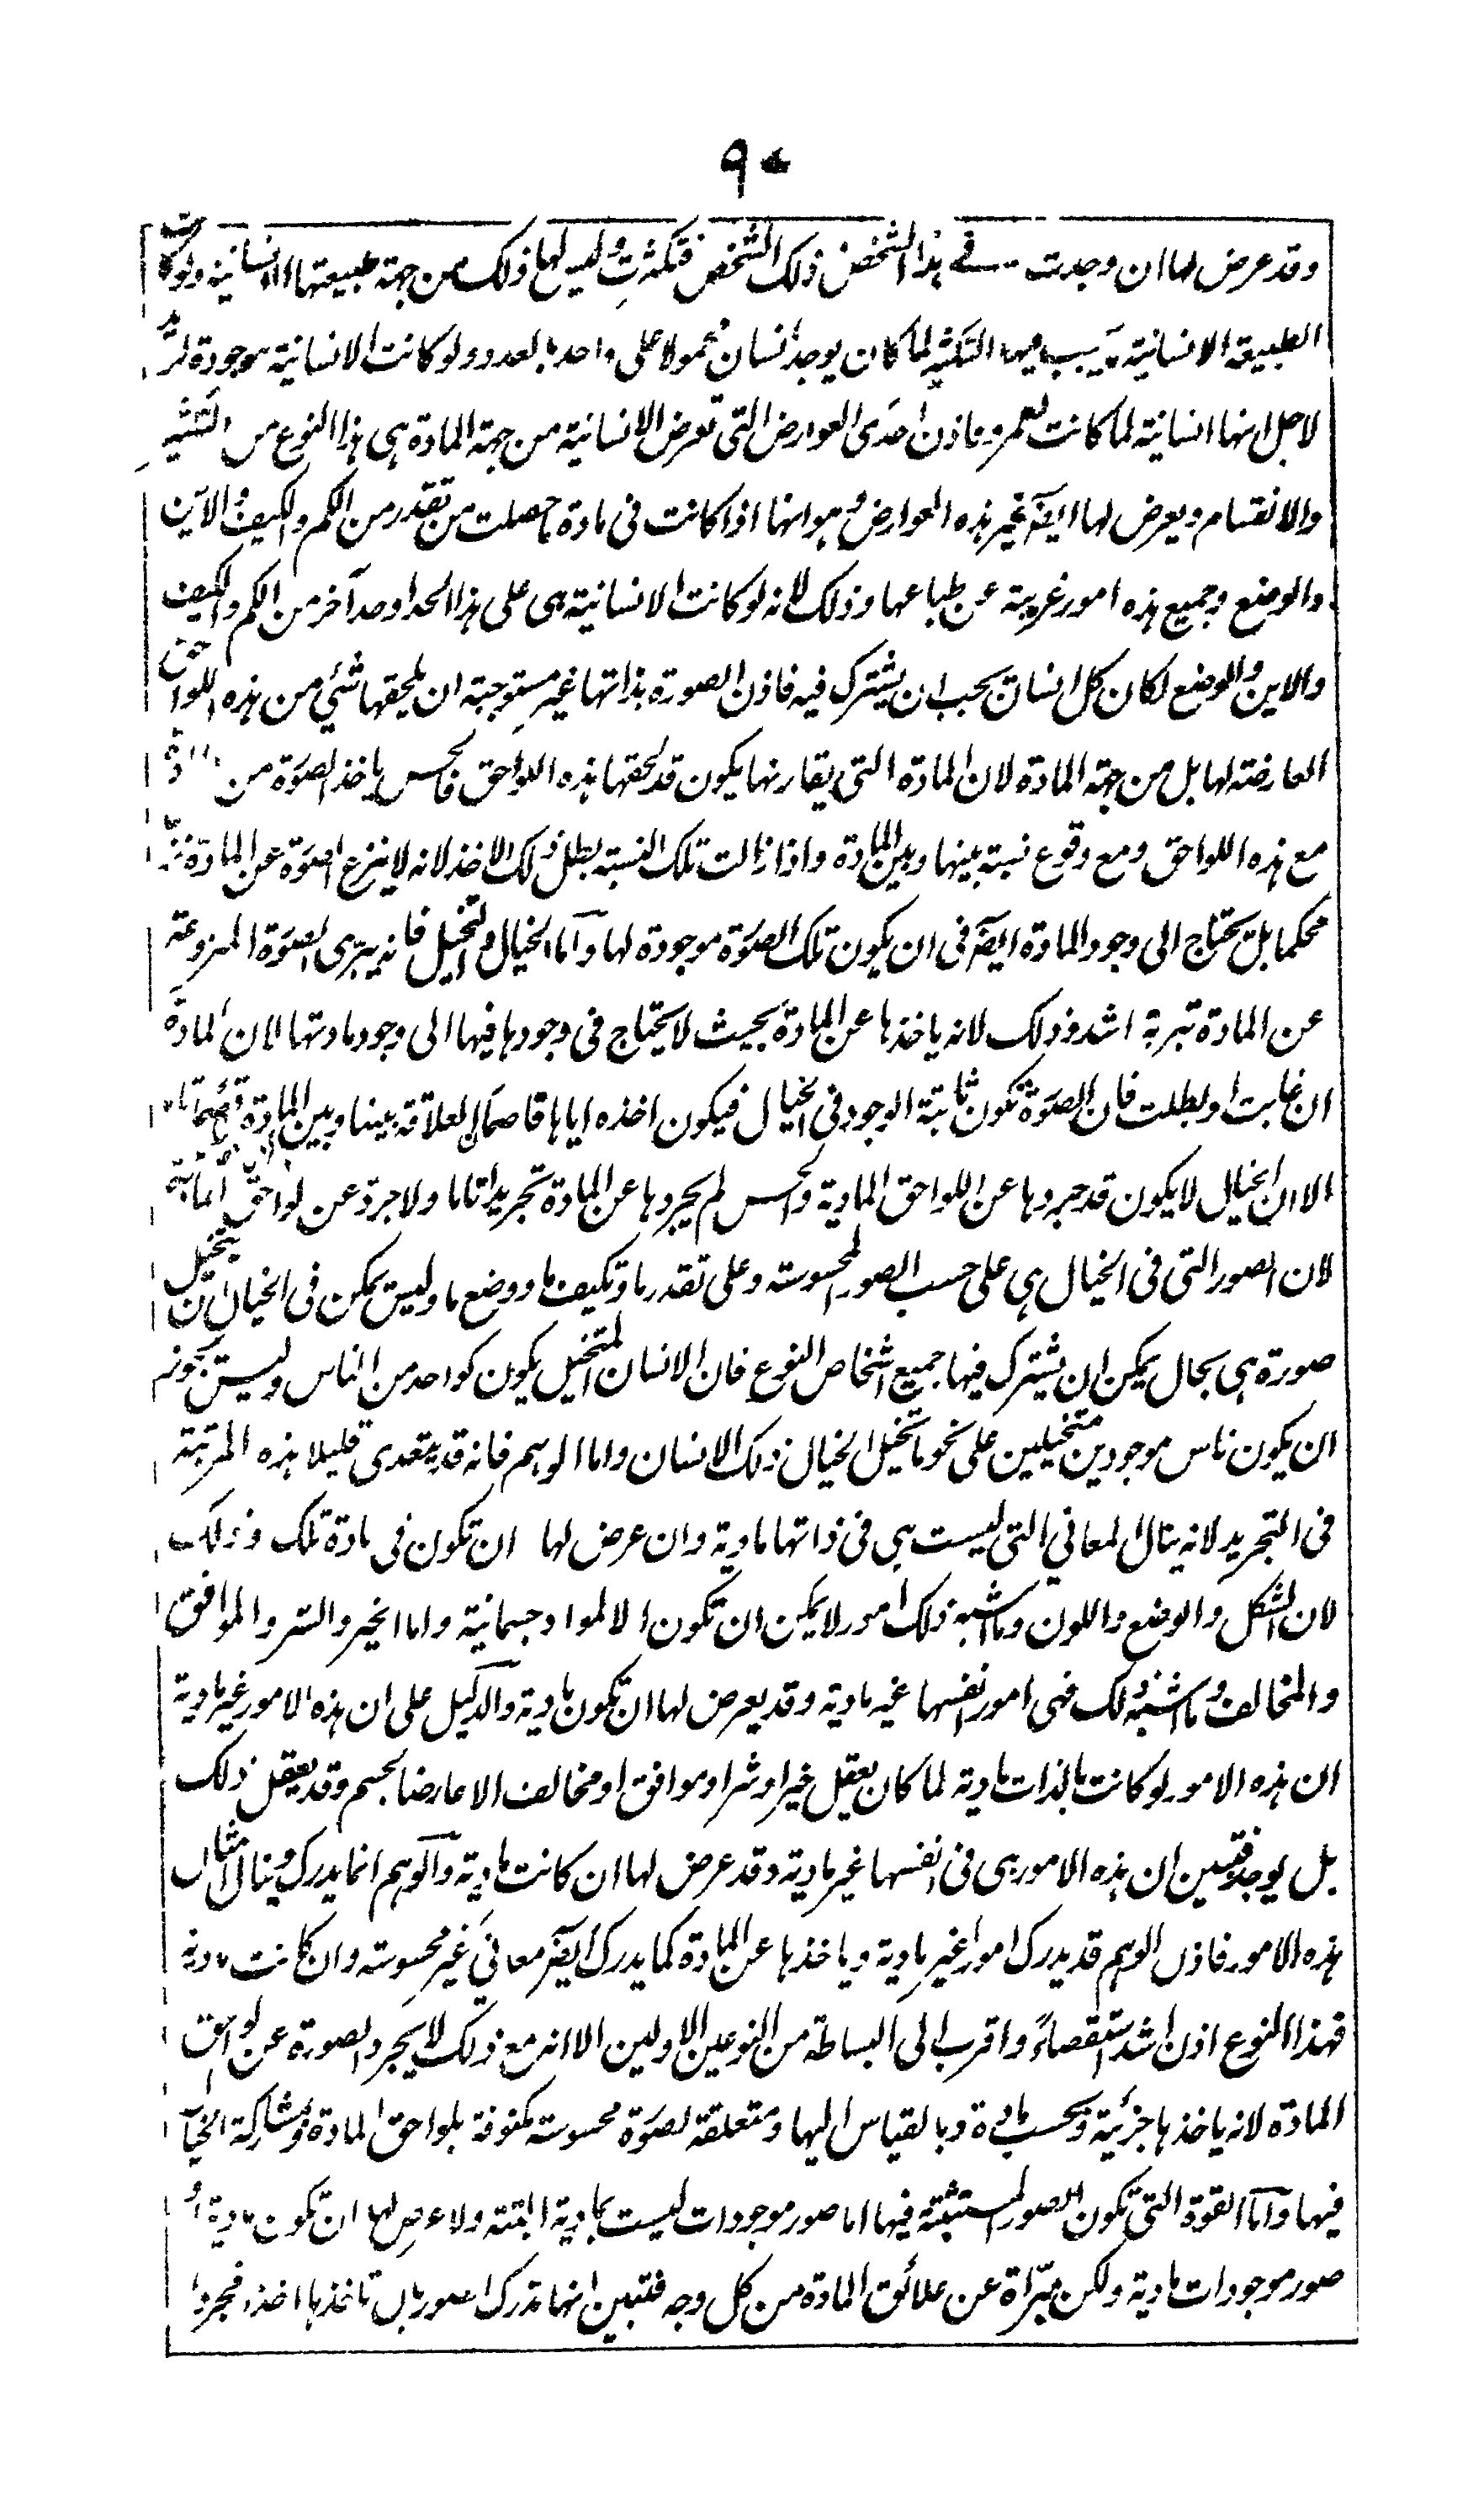 ٩٠
وقد عرض لها ان وجدت في هذا الشخص ذلك الشخص فتكثرت وليس لها ذلك من جهة طبيعتها الانسانية ولو كانت
الطبيعة الانسانية يجب فيها التكثير لما كان يوجد انسان محمولا على واحد بالعدد ولو كانت الانسانية موجودة لزيد
لاجل انها انسانية لما كانت لعمرو فاذن احدى العوارض التي تعرض الانسانية من جهة المادة هي هذا النوع من التكثير
والانقسام ويعرض لها ايضا غير هذه العوارض وهو انها اذا كانت في مادة ما حصلت من تقدر من الكم والكيف والاين
والوضع وجميع هذه امور غريبة عن طباعها وذلك لانه لو كانت الانسانية هي على هذا الحد او حد آخر من الكم والكيف
والاين والوضع لكان كل انسان يجب ان يشترك فيه فاذن الصورة بذاتها غير مستوجبة ان يلحقها شئ من هذه اللواحق
العارضة لها بل من جهة المادة لان المادة التي يقارنها يكون قد لحقها هذه اللواحق فالحس ياخذ الصورة من المادة
مع هذه اللواحق ومع وقوع نسبة بينها وبين المادة واذا زالت تلك النسبة بطل ذلك الاخذ لانه لا ينزع الصورة عن المادة نزعا
محكما بل يحتاج الى وجود المادة ايضا في ان يكون تلك الصورة موجودة لها واما الخيال والتخيل فانه يبرى الصورة المنزوعة
عن المادة تبرية اشد وذلك لانه ياخذها عن المادة بحيث لا يحتاج في وجودها فيها الى وجود مادتها لان المادة
ان غابت او بطلت فان الصورة تكون ثابتة الوجود في الخيال فيكون اخذه اياها قاصما للعلاقة بينها وبين المادة قصما تاما
الا ان الخيال لا يكون قد جردها عن اللواحق المادية والحس لم يجردها عن المادة تجريدا تاما ولا جردة عن لواحق المادة
لان الصور التي في الخيال هي على حسب الصور المحسوسة وعلى تقدر ما وتكيف ما ووضع ما وليس يمكن في الخيال ان تتخيل
صورة هي بحال يمكن ان يشترك فيها جميع اشخاص النوع فان الانسان المتخيل يكون كواحد من الناس وليس يجوز
ان يكون ناس موجودين متخيلين على نحو ما تخيل الخيال ذلك الانسان واما الوهم فانه قد يتعدى قليلا هذه المرتبة
في التجريد لانه ينال المعاني التي ليست هي في ذاتها مادية وان عرض لها ان تكون في مادة تلك وذلك
لان الشكل والوضع واللون وما اشبه ذلك امور لا يمكن ان تكون الا لمواد جسمانية واما الخير والشر والموافق
والمخالف وما اشبه ذلك فهي امور نفسها غير مادية وقد يعرض لها ان تكون مادية والدليل على ان هذه الامور غير مادية
ان هذه الامور لو كانت بالذات مادية لما كان يعقل خير او شر او موافق او مخالف الا عارضا لجسم وقد يعقل ذلك
بل يوجد فتبين ان هذه الامور هي في انفسها غير مادية وقد عرض لها ان كانت مادية والوهم انما يدرك وينال امثال
هذه الامور فاذن الوهم قد يدرك امورا غير مادية وياخذها عن المادة كما يدرك ايضا معاني غير محسوسة وان كانت مادية
فهذا النوع اذن اشد استقصاء واقرب الى البساطة من النوعين الاولين الا انه مع ذلك لا يجرد الصورة عن لواحق
المادة لانه ياخذها جزئية وبحسب مادة وبالقياس اليها ومتعلقة لصورة محسوسة مكنوفة بلواحق المادة وبمشاركة الخيال
فيها واما القوة التي تكون الصور المستثبتة فيها اما صور موجودات ليست بمادية البتة ولا عرض لها ان تكون مادية او
صور موجودات مادية ولكن مبراة عن علائق المادة من كل وجه فتبين انها تدرك الصور بان تاخذها اخذا مجردا